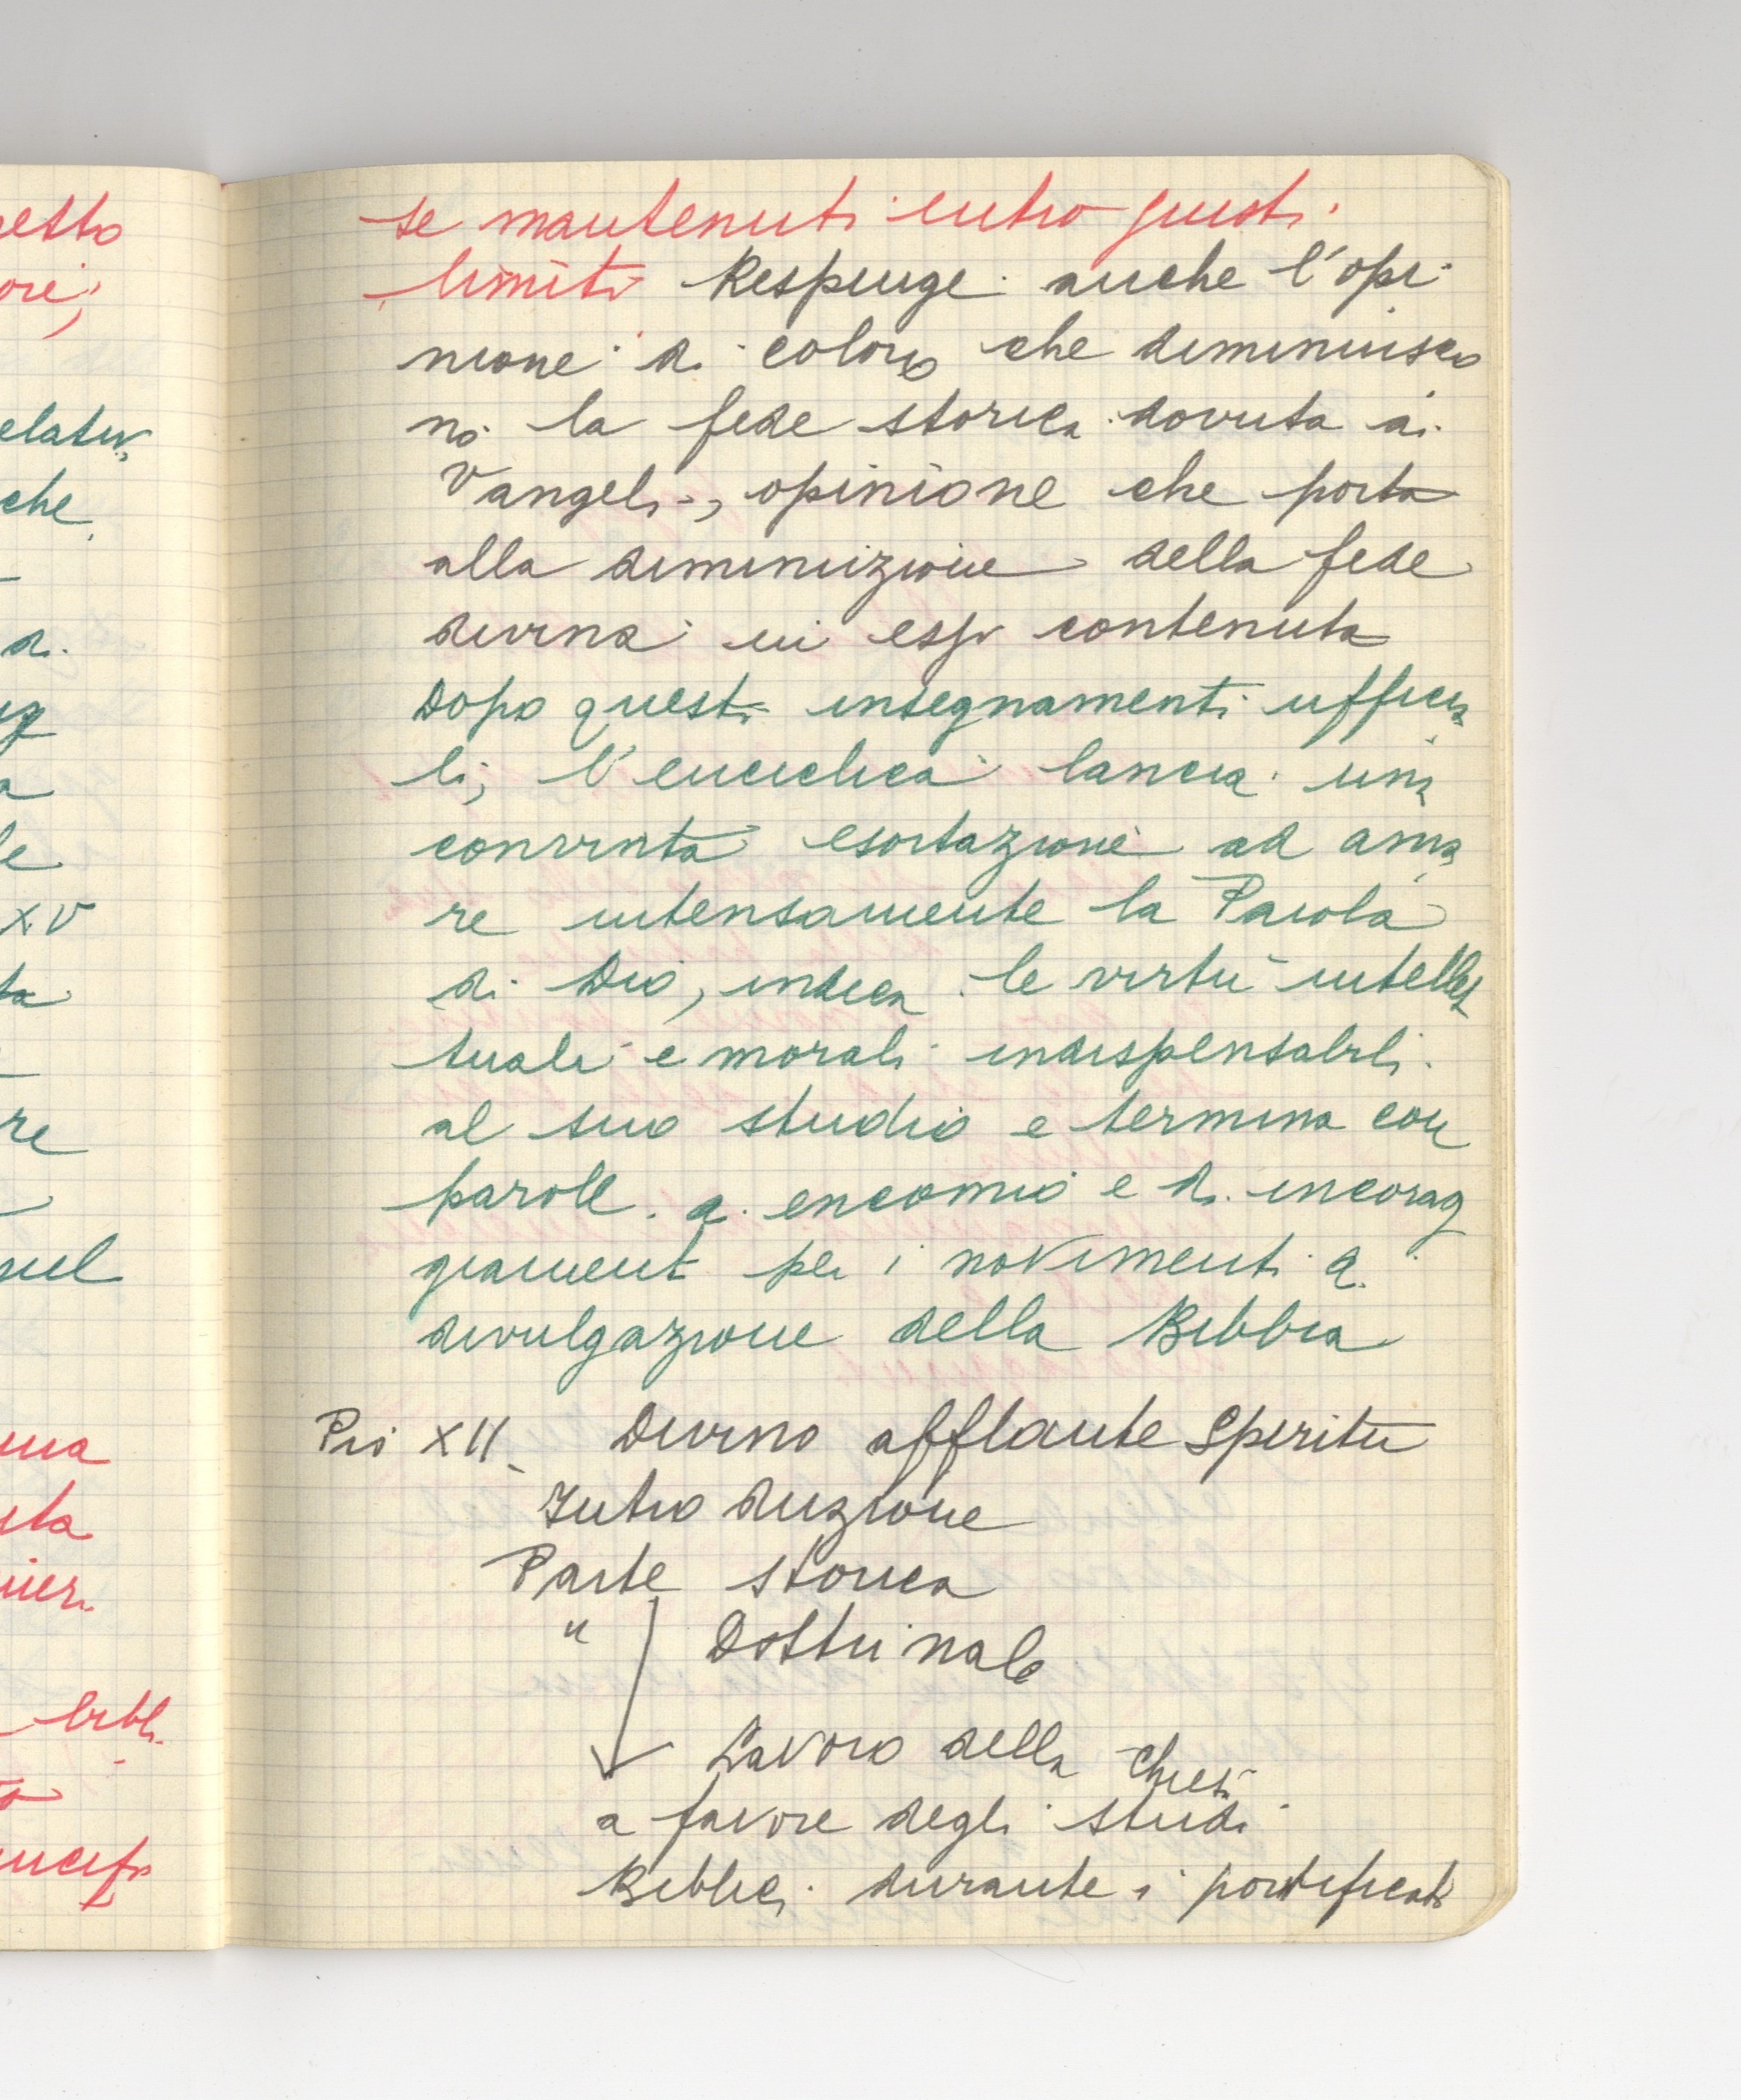 se mantenuti entro giusti
limiti Respinge anche l'opi
nione di coloro che diminuisco
no la fede storica dovuta ai
Vangeli, opinione che porta
alla diminuizione della fede
divina in essi contenuta
Dopo questi insegnamenti ufficia
li, l'enciclica lancia una
convinta esortazione ad ama
re intensamente la Parola
di Dio, indica le virtù intellet
tuali e morali indispensabili
al suo studio e termina con
parole di encomio e di incorag
giamenti per i movimenti di
divulgazione della Bibbia
Pio XII - Divino afflante Spiritu
Introduzione
Parte storica
" Dottrinale
Lavoro della Chiesa
a favore degli studi
Biblici durante i pontificati
etto
ori,
che
di
a
le
XV
ta
re
sul
bibl.